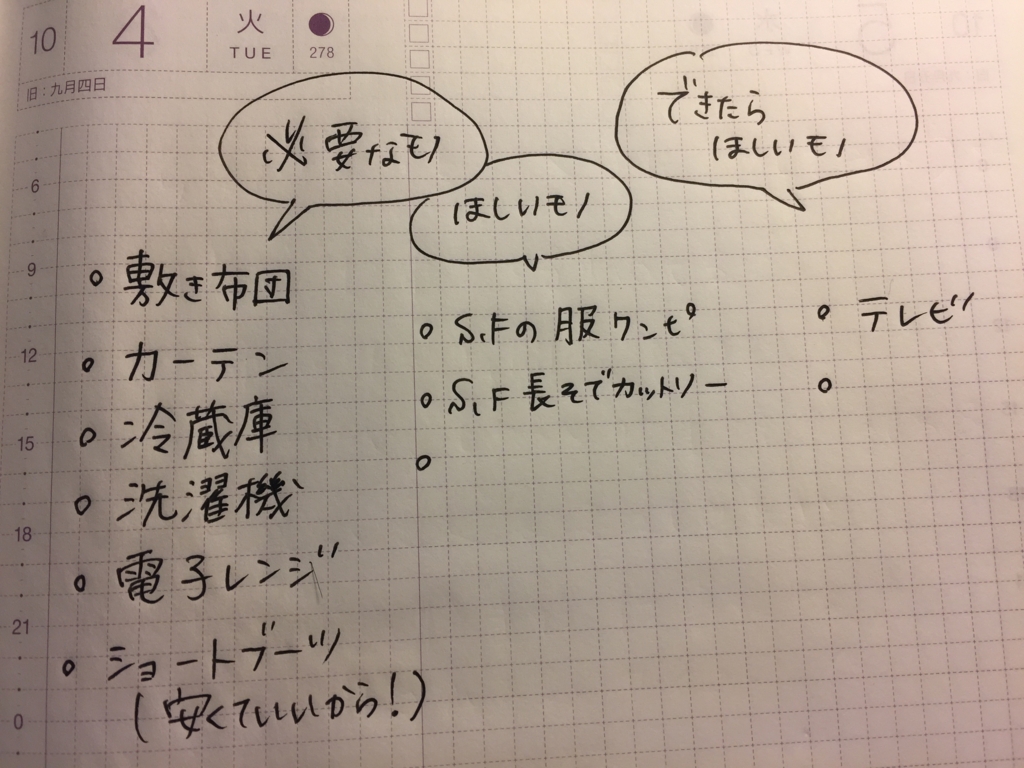 10
4
火
TUE
278
旧:九月四日
必要なモノ
ほしいモノ
できたら
ほしいモノ
6
9
12
15
18
21
0
敷き布団
カーテン
冷蔵庫
洗濯機
電子レンジ
ショートブーツ
(安くていいから!)
S.Fの服ワンピ
S.F長そでカットソー
テレビ